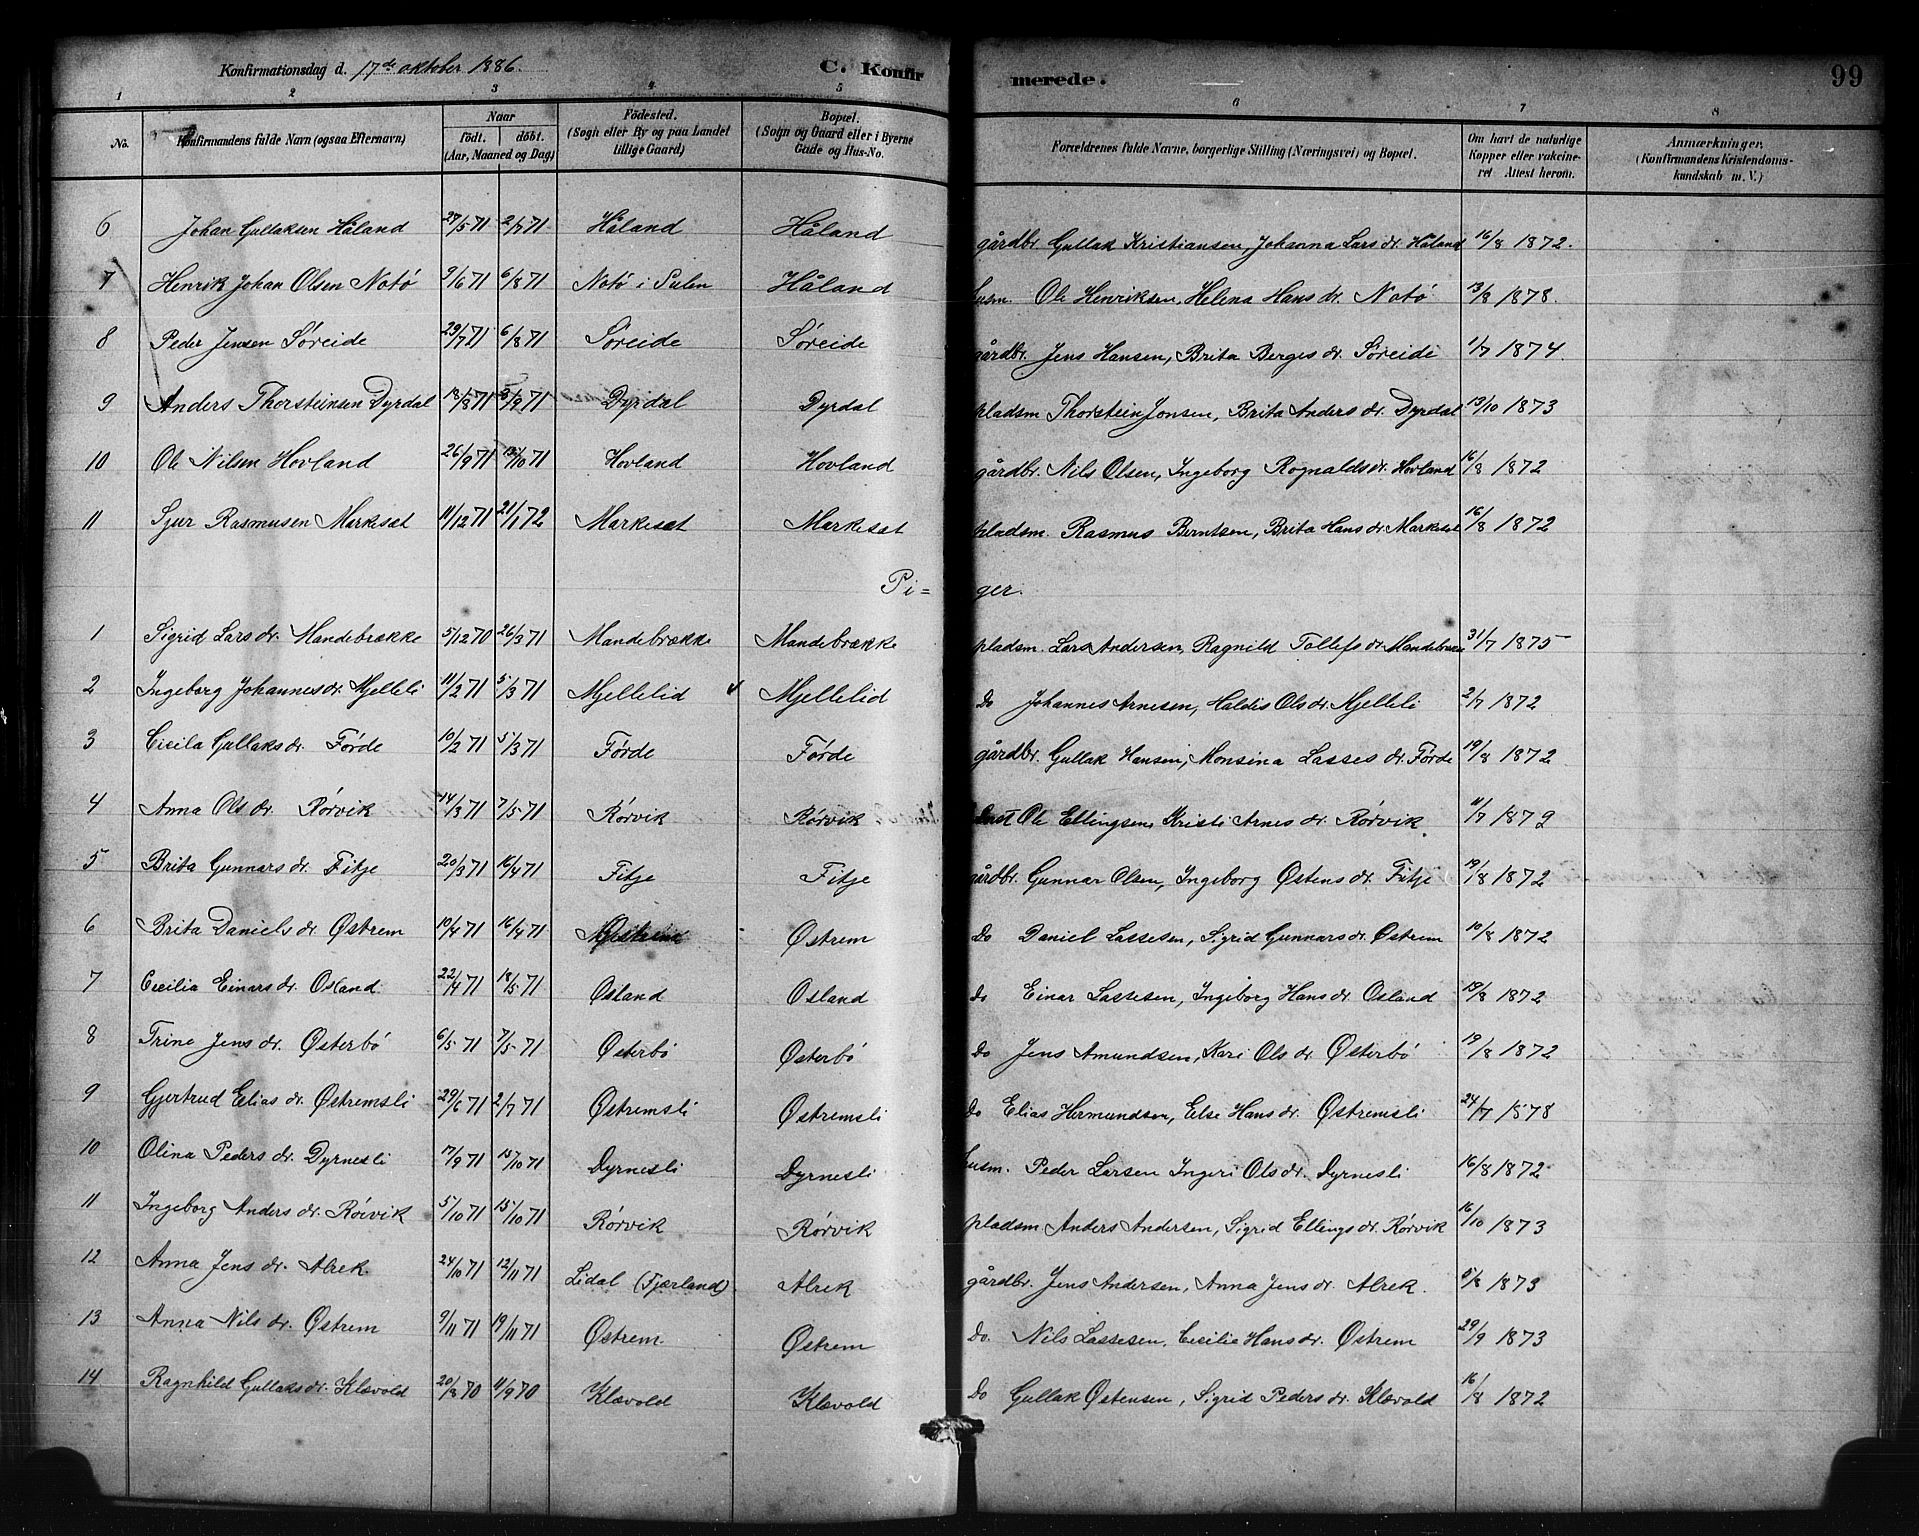 Konfirmationsdag d. 17de oktober 1886. C. Konfir merede. 99
1 2 3 4 5 6 7 8
No. Konfirmandens fulde Navn (ogsaa Efternavn) Naar født. døbt. (Aar, Maaned og Dag) Fødested. (Sogn eller By og paa Landet tillige Gaard) Bopæl. (Sogn og Gaard eller i Byerne Gade og Hus-No. Forældrenes fulde Navne, borgerlige Stilling (Næringsvei) og Bopæl. Om havt de naturlige Kopper eller vakcineret Attest herom. Anmærkninger. (Konfirmandens Kristendomskundskab m. V.)
6 Johan Gullaksen Håland 27/5 71 2/7 71 Håland Håland gårdbr. Gullak Kristiansen, Johanna Lars dr. Håland 16/8 1872.
7 Henrik Johan Olsen Notø 9/6 71 6/8 71 Notø i Sulen Håland husm. Ole Henriksen, Helena Hans dr. Notø 13/8 1878.
8 Peder Jensen Søreide 29/7 71 6/8 71 Søreide Søreide gårdbr. Jens Hansen, Brita Berges dr. Søreide 1/7 1874
9 Anders Thorsteinsen Dyrdal 18/8 71 /9 71 Dyrdal Dyrdal pladsm Thorstein Jonsen, Brita Anders dr. Dyrdal 13/10 1873
10 Ole Nilsen Hovland 26/9 71 /10 71 Hovland Hovland gårdbr. Nils Olsen, Ingeborg Rognalds dr. Hovland 16/8 1872
11 Sjur Rasmusen Markesæt 11/12 71 21/1 72 Markesæt Markesæt pladsm. Rasmus Berntsen, Brita Hans dr. Markesæt 16/8 1872
Pi= ger.
1 Sigrid Lars dr. Mandebrække 5/12 70 26/3 71 Mandebrække Mandebrække pladsm. Lars Andersen, Ragnild Tollefs dr. Mandebrække 31/7 1875
2 Ingeborg Johannes dr. Mjelleli 11/2 71 5/3 71 Mjellelid Mjellelid Do Johannes Arnesen, Haldis Ols dr. Mjelleli 2/7 1872
3 Cicila Gullaks dr. Førde 10/2 71 5/3 71 Førde Førde gårdbr. Gullak Hansen, Monsina Lasses dr. Førde 19/8 1872
4 Anna Ols dr. Rørvik 14/3 71 7/5 71 Rørvik Rørvik Ole Ellingsen, Kristi Arnes dr. Rørvik. 11/7 1872
5 Brita Gunnars dr. Fitje 20/3 71 16/4 71 Fitje Fitje gårdbr. Gunnar Olsen, Ingeborg Østens dr. Fitje 19/8 1872
6 Brita Daniels dr. Østrem 10/4 71 16/4 71 Østrem Do Daniel Lassesen, Sigrid Gunnars dr. Østrem 10/8 1872
7 Cecilia Einars dr. Osland. 22/4 71 18/5 71 Osland Osland do Einar Lassesen, Ingeborg Hans dr. Osland 19/8 1872
8 Trine Jens dr. Østerbø 6/5 71 7/5 71 Østerbø Østerbø do Jens Amundsen, Kari Ols dr. Østerbø 19/8 1872
9 Gjertrud Elias dr. Østremsli 29/6 71 2/7 71 Østremsli Østremsli Do Elias Hermundsen, Else Hans dr. Østremsli 24/7 1878
10 Olina Peders dr. Dyrnesli 17/9 71 15/10 71 Dyrnesli Dyrnesli husm. Peder Larsen Ingeri Ols dr. Dyrnesli 16/8 1872
11 Ingeborg Anders dr. Rørvik 5/10 71 15/10 71 Rørvik Rørvik pladsm Anders Andersen, Sigrid Ellings dr. Rørvik 16/10 1873
12 Anna Jens dr. Alrek. 24/10 71 12/11 71 Lidal (Fjærland). Alrek gårdbr. Jens Andersen, Anna Jens dr. Alrek. 5/8 1873
13 Anna Nils dr. Østrem 9/11 71 19/11 71 Østrem. Østrem do. Nils Lassesen. Cecilia Hans dr. Østrem 29/9 1873
14 Ragnhild Gullaks dr. Klævold 20/8 70 11/9 70 Klævold Klævold Do Gullak Østensen, Sigrid Peders dr. Klævold 16/8 1872